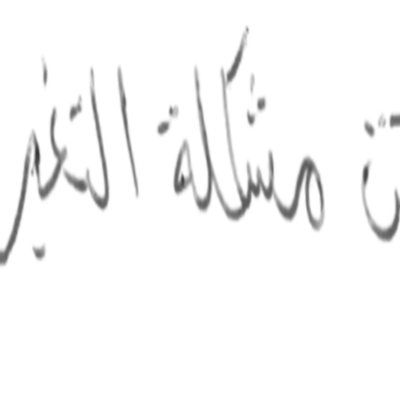 ت مشكلة التغير